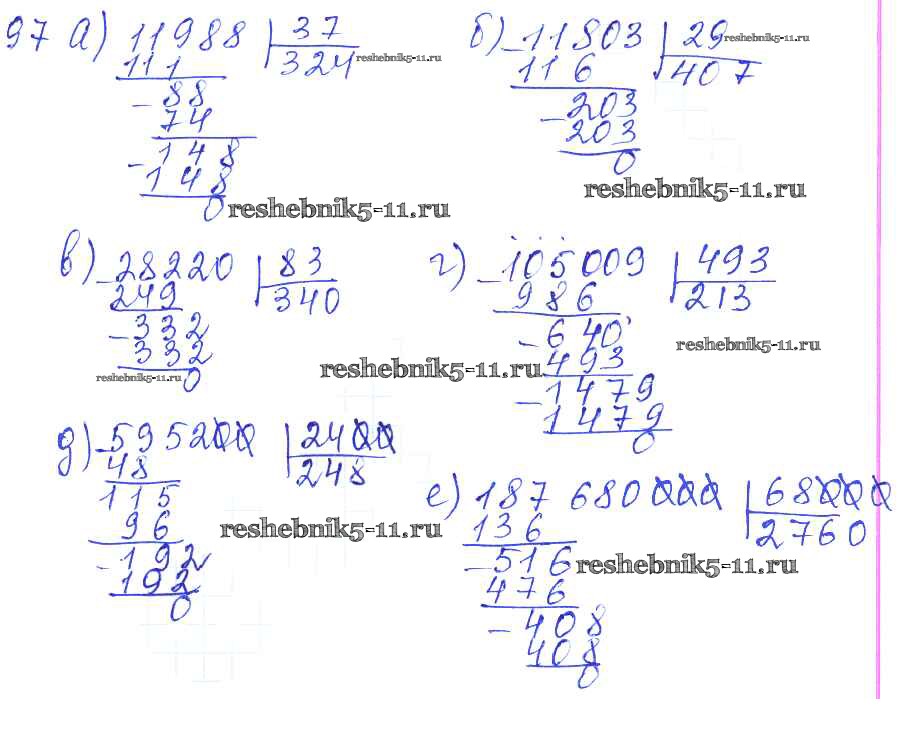 97 а) 11988 | 37
111 324 reshebnik5-11.ru
- 88
74
- 148
148
0 reshebnik5-11.ru
б) - 11803 | 29 reshebnik5-11.ru
116 407
- 203
203
0
reshebnik5-11.ru
в) - 28220 | 83
249 340
- 332
332
reshebnik5-11.ru 0
reshebnik5-11.ru
г) - 105009 | 493
986 213
- 640
reshebnik5-11.ru
493
- 1479
1479
0
д) - 595200 | 2400
48 248
115
96
reshebnik5-11.ru
- 192
192
0
е) 187 680000 | 68000
136 2760
- 516
reshebnik5-11.ru
476
- 408
408
0